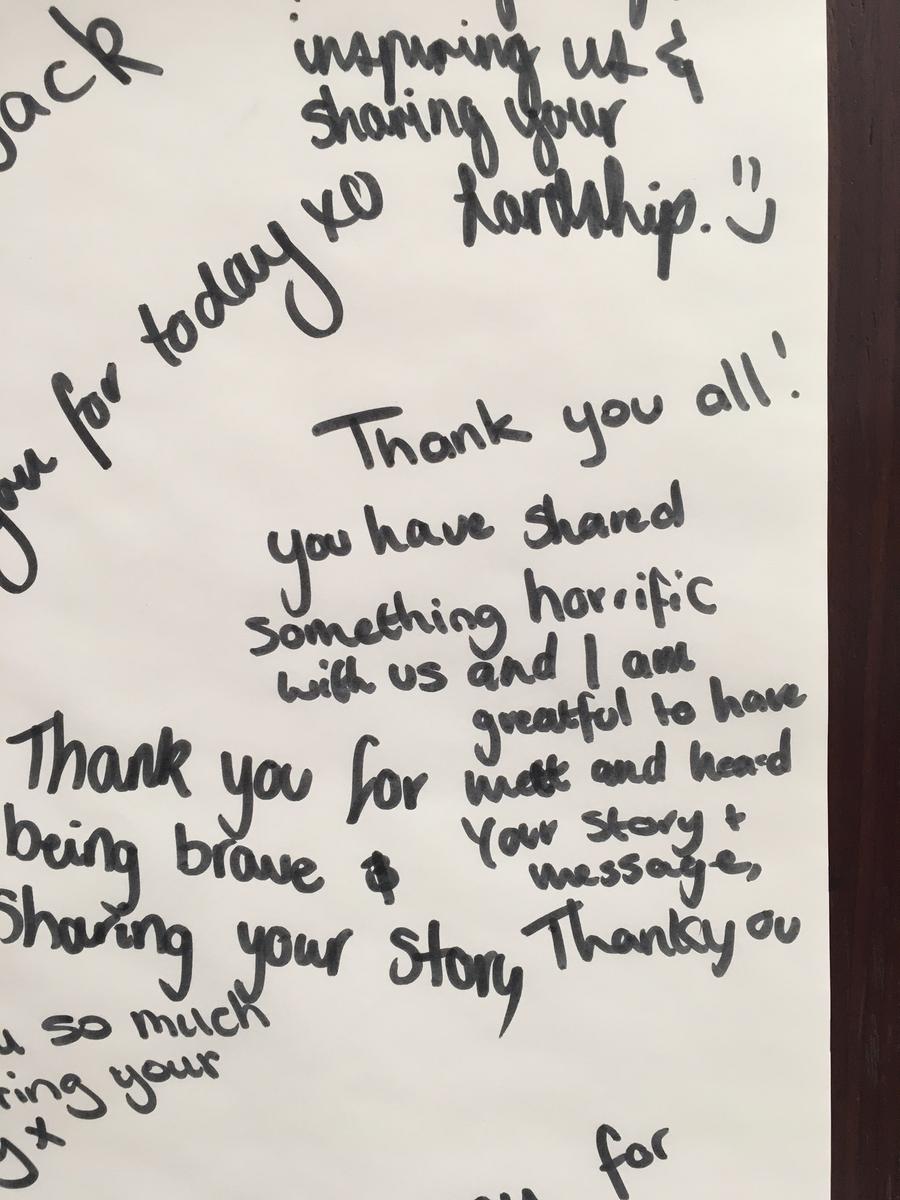 Jack
inspiring us &
sharing your
hardship. :)
you for today xo
Thank you all!
you have shared
something horrific
with us and I am
greatful to have
mett and heard
Your story +
message,
Thankyou
Thank you for
being brave &
Sharing your story
so much
your
x
for